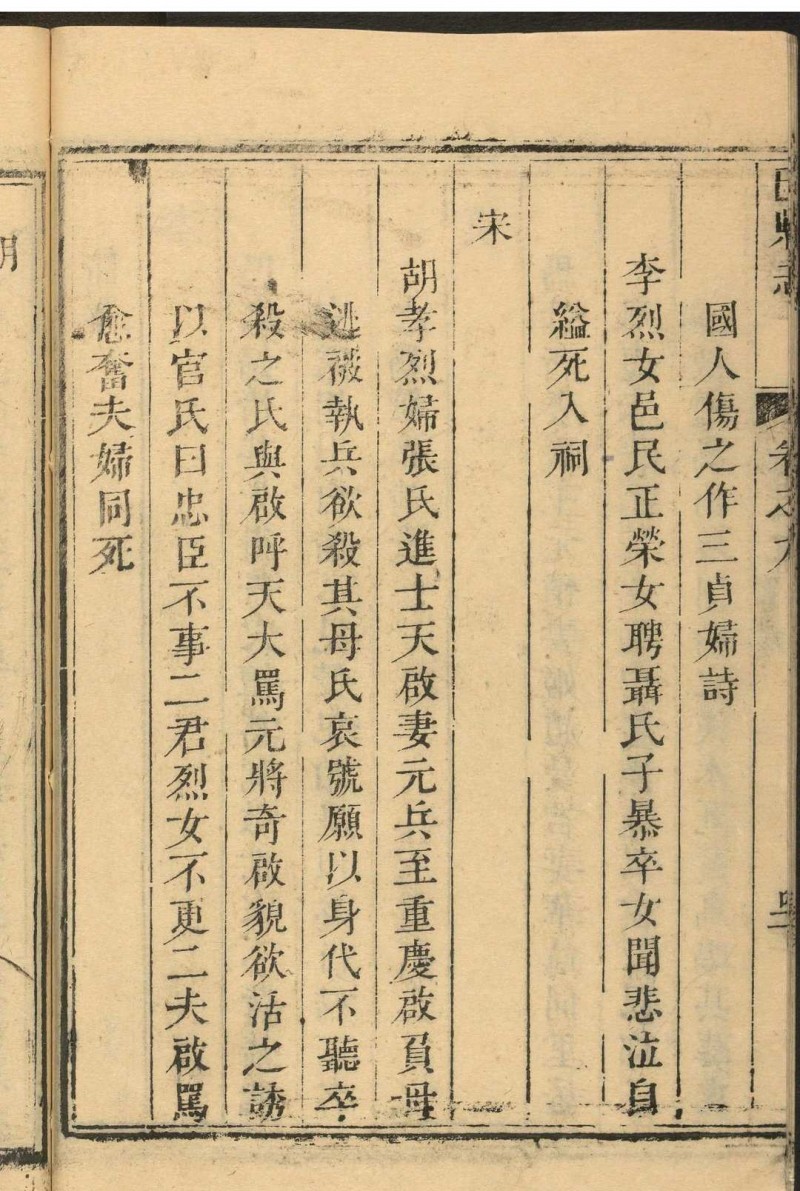 國人傷之作三貞婦詩
李烈女邑民正榮女聘聶氏子暴卒女聞悲泣自
縊死入祠
宋
胡孝烈婦張氏進士天啟妻元兵至重慶啟負母
逃被執兵欲殺其母氏哀號願以身代不聽卒
殺之氏與啟呼天大罵元將奇啟貌欲活之誘
以官氏曰忠臣不事二君烈女不更二夫啟罵
愈奮夫婦同死